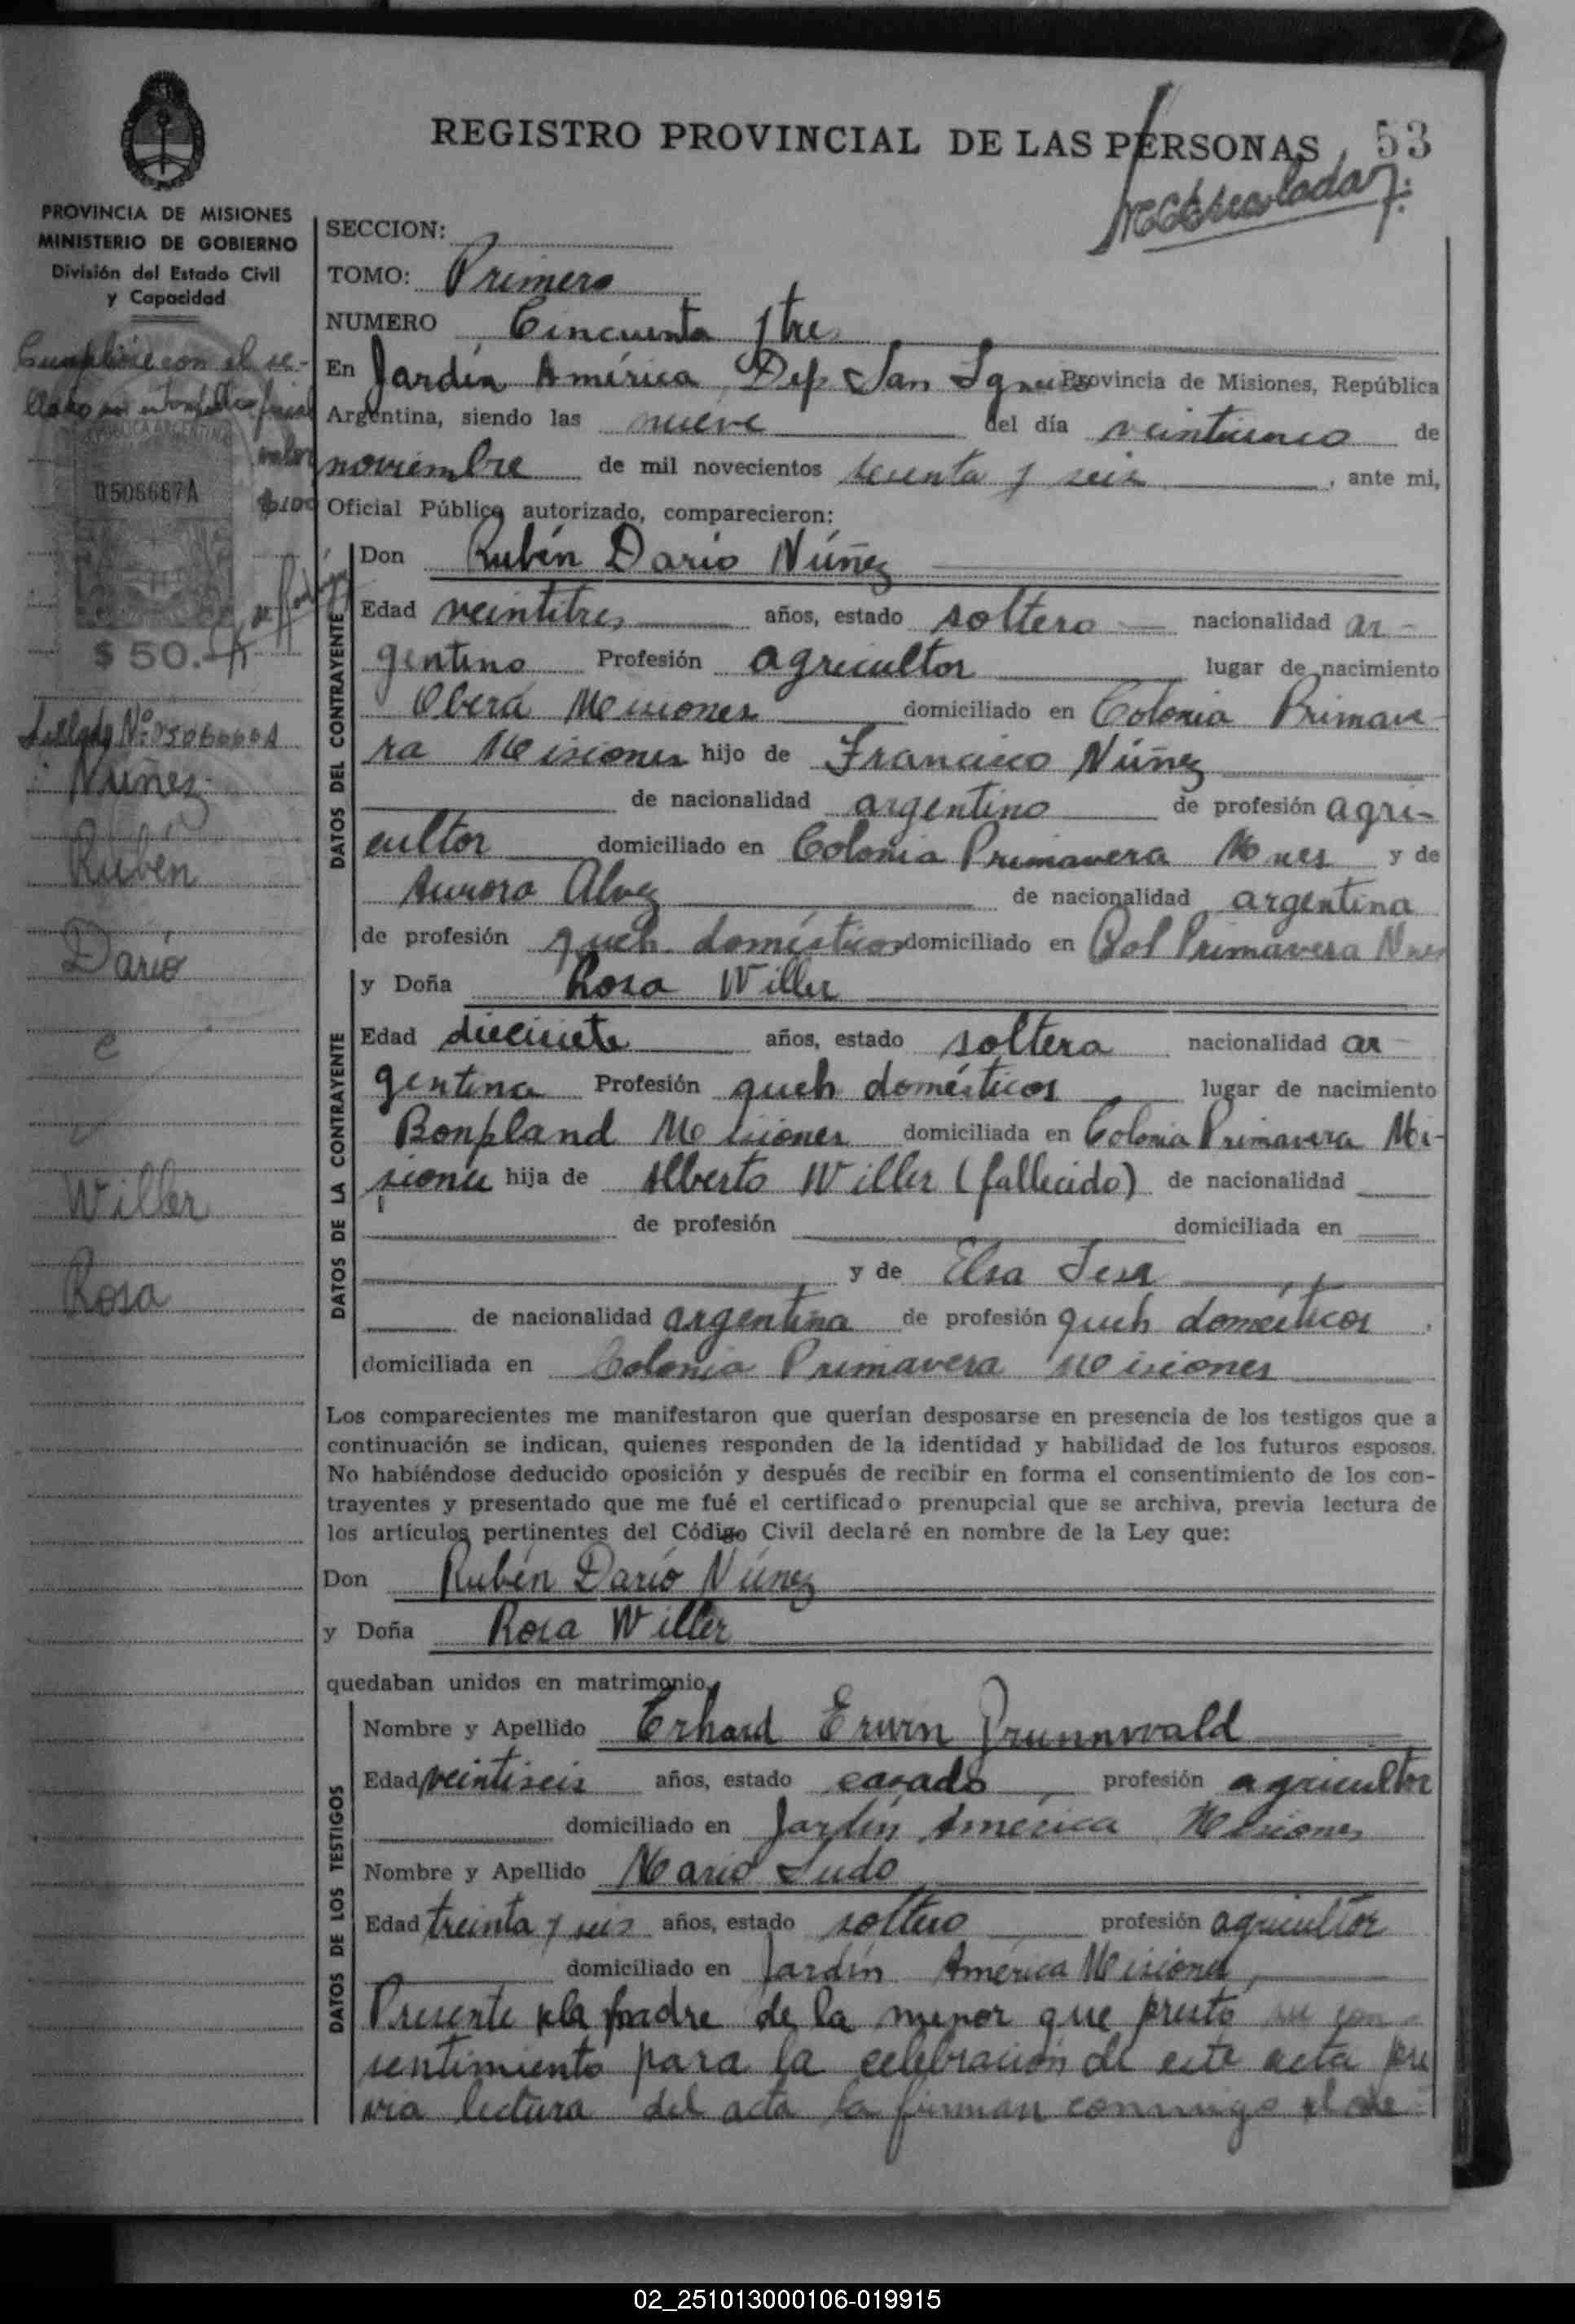 REGISTRO PROVINCIAL DE LAS PERSONAS 53
PROVINCIA DE MISIONES
MINISTERIO DE GOBIERNO
División del Estado Civil
y Capacidad
con el se-
valor
0506667A
$100
$ 50.-
Sellado Nº
Núñez
Rubén
Darío
c
Willer
Rosa
SECCION:
TOMO: Primero
NUMERO Cincuenta y tres
En Jardín América Dep San Ignacio Provincia de Misiones, República
Argentina, siendo las nueve del día veinticinco de
noviembre de mil novecientos setenta y seis, ante mi,
Oficial Público autorizado, comparecieron:
DATOS DEL CONTRAYENTE
Don Rubén Darío Núñez
Edad veintitres años, estado soltero nacionalidad ar-
gentino Profesión agricultor lugar de nacimiento
Oberá Misiones domiciliado en Colonia Primave-
ra Misiones hijo de Francisco Núñez
de nacionalidad argentino de profesión agri-
cultor domiciliado en Colonia Primavera Mnes y de
Aurora Alvez de nacionalidad argentina
de profesión queh. domésticos domiciliado en Col Primavera Mnes
DATOS DE LA CONTRAYENTE
y Doña Rosa Willer
Edad diecisiete años, estado soltera nacionalidad ar-
gentina Profesión queh domésticos lugar de nacimiento
Bonpland Misiones domiciliada en Colonia Primavera Mi-
siones hija de Alberto Willer (fallecido) de nacionalidad
de profesión domiciliada en
y de Elsa
de nacionalidad argentina de profesión queh domésticos
domiciliada en Colonia Primavera Misiones
Los comparecientes me manifestaron que querían desposarse en presencia de los testigos que a
continuación se indican, quienes responden de la identidad y habilidad de los futuros esposos.
No habiéndose deducido oposición y después de recibir en forma el consentimiento de los con-
trayentes y presentado que me fué el certificado prenupcial que se archiva, previa lectura de
los artículos pertinentes del Código Civil declaré en nombre de la Ley que:
Don Rubén Darío Núnez
y Doña Rosa Willer
quedaban unidos en matrimonio.
DATOS DE LOS TESTIGOS
Nombre y Apellido Erhard Erwin Prunnwald
Edad veintiseis años, estado casado profesión agricultor
domiciliado en Jardín América Misiones
Nombre y Apellido Mario Ludo
Edad treinta y seis años, estado soltero profesión agricultor
domiciliado en Jardín América Misiones
Presente la madre de la menor que prestó su con-
sentimiento para la celebración de este acta pre
via lectura del acta la firman conmigo
02_251013000106-019915